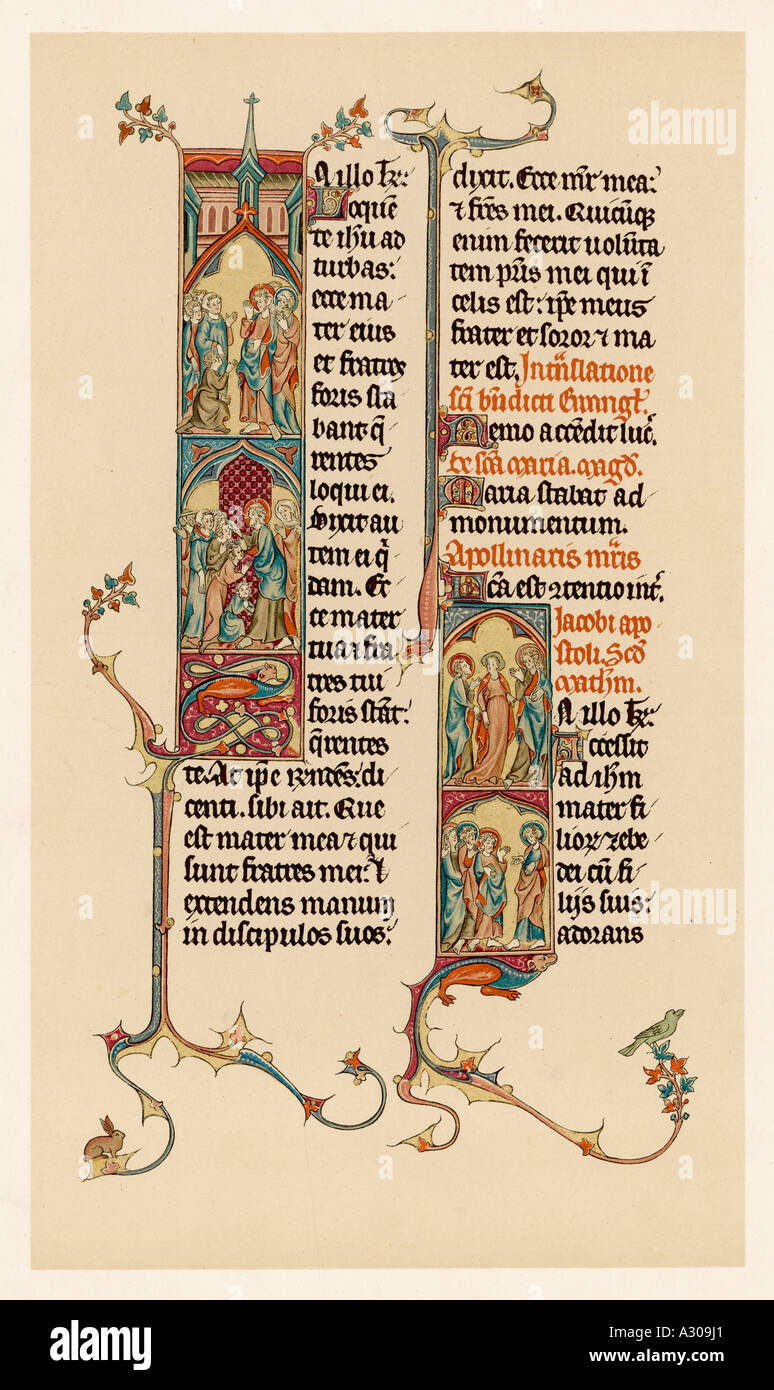 N illo tꝑe:
Loquē
te ihu ad
turbas:
ecce ma
ter eius
et fratres
foris sta
bant q̄
rentes
loqui ei.
Dixit au
tem ei q̄
dam. Ec
ce mater
tua ⁊ fra
tres tui
foris stāt:
q̄rentes
te. At ipe rn̄dēs di
centi. sibi ait. Que
est mater mea ⁊ qui
sunt fratres mei: ⁊
extendens manum
in discipulos suos:
dixit. Ecce mr̄ mea:
⁊ fr̄es mei. Quicūqꝫ
enim fecerit uolūta
tem pr̄is mei qui ī
celis est: ipe meus
frater et soror ⁊ ma
ter est. In tn̄slatione
sc̄i bn̄dicti Ewngl̄.
Nemo accēdit luc̄.
De sc̄a maria. magd̄.
Maria stabat ad
monumentum.
Apollinaris mr̄is
Fc̄a est ⁊tentio int̄.
Jacobi apo
stoli. Scd̄
mathm.
N illo tꝑe:
Accessit
ad ihm
mater fi
lioꝝ zebe
dei cū fi
lijs suis:
adorans
alamy
Image ID: A309J1
www.alamy.com